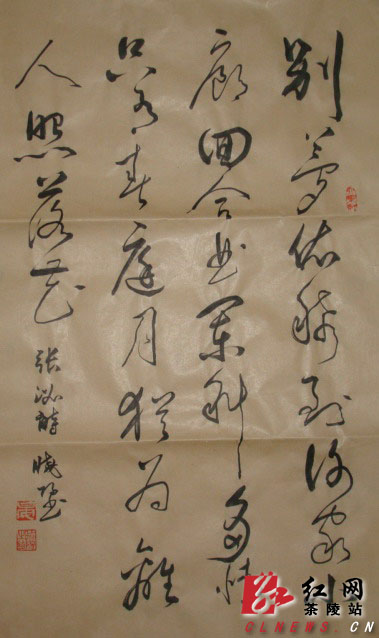 别梦依稀到谢家小
廊回合曲阑斜多情
只有春庭月犹为離
人照落花 张泌诗 晓
红网
茶陵站
CLNEWS.CN